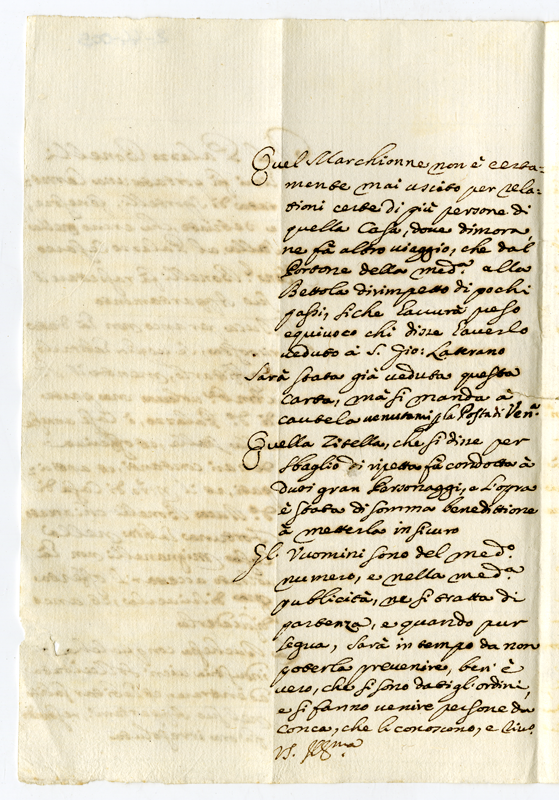 Quel Marchionne non è certa=
mente mai uscito per rela=
tioni certe di più persone di
quella Casa, dove dimora,
ne fà altro viaggio, che dal
Portone della med.ª alla
Bettola dirimpetto di pochi
passi, siche haverà preso
equivoco chi disse haverlo
veduto à S. Gio: Laterano
Sarà stata già veduta questa
Carta, mà si manda à
cautela venutami p la Posta di Ven.ª
Quella Zitella, che si disse per
sbaglio di ripetta fù condotta à
duoi gran Personaggi, e l'opra
è stata di somma beneditione
à metterla in sicuro
Gl. Vuomini sono del med.º
numero, e nella med.ª
publicità, ne si tratta di
partenza, e quando pur
segua, sarà in tempo da non
poterla prevenire, ben' è
vero, che si sono dati gl'ordini,
e si fanno venire persone da
Conca, che li conoscono, e
VS. Ill.ma